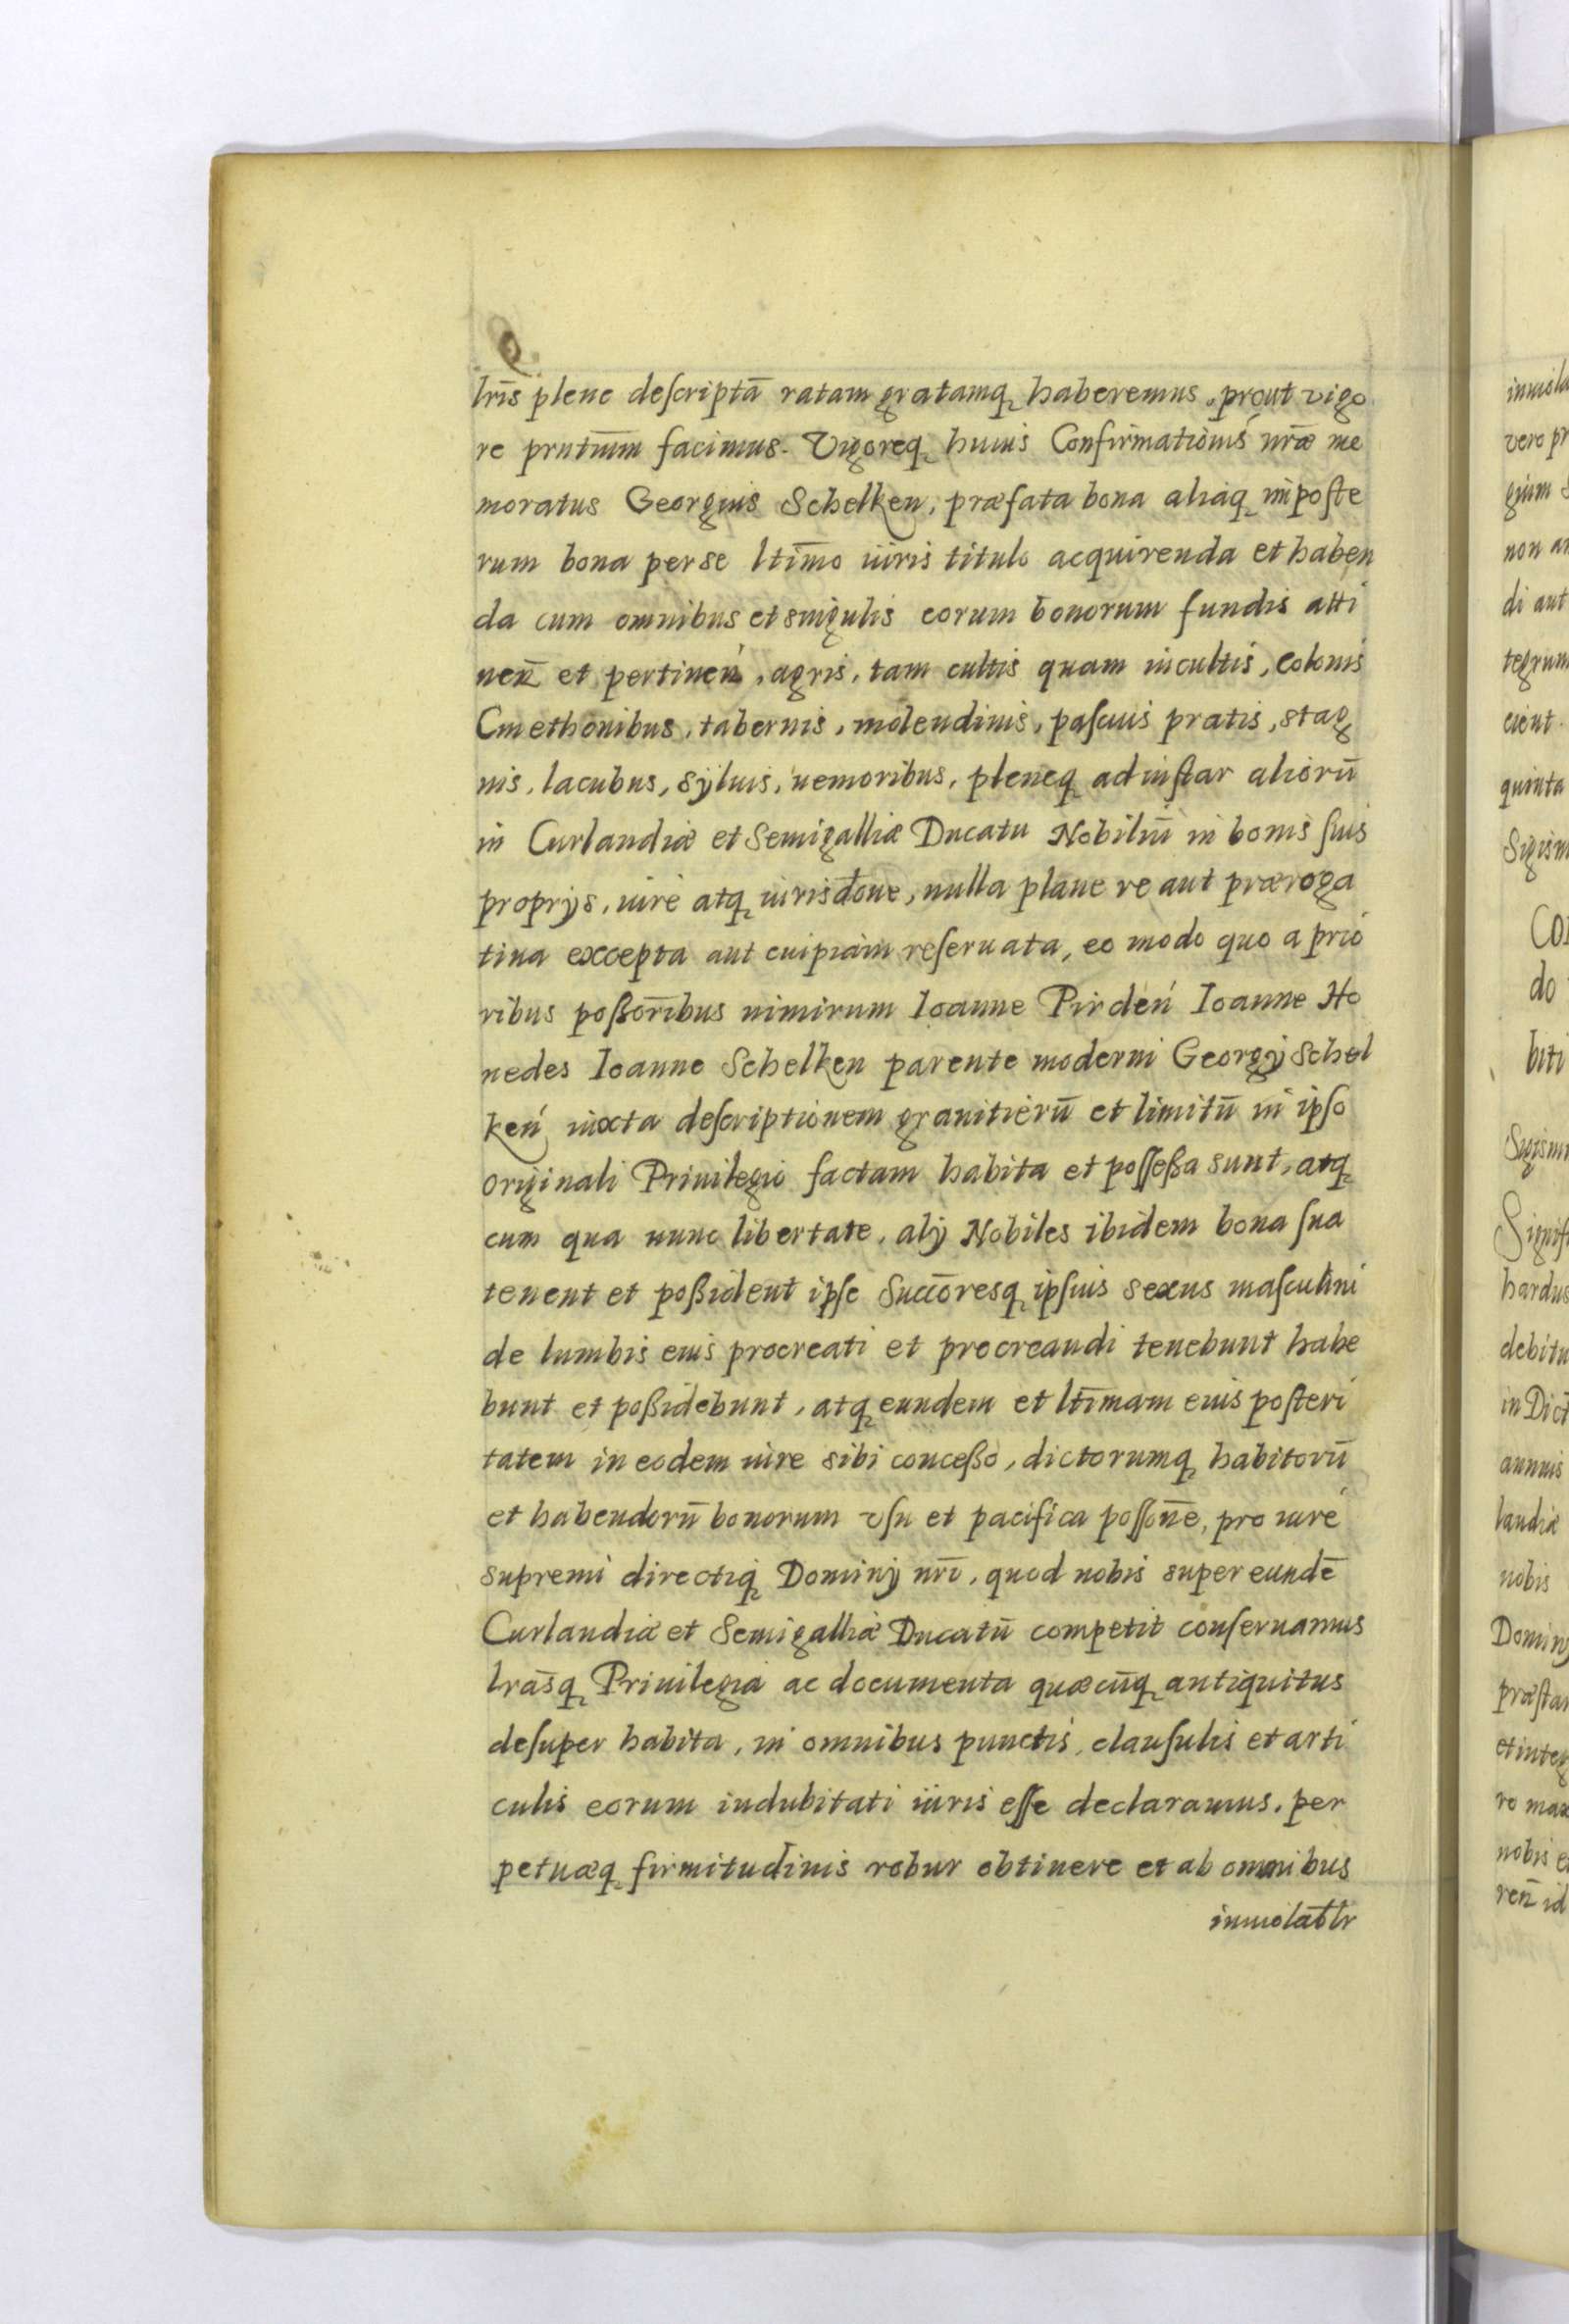 lrīs plene descriptā ratam gratamq haberemus, prout vigo
re prntium facimus. Vigoreq huius Confirmationis nræ me
moratus Georgius Schelken, præfata bona aliaq imposte
rum bona per se ltīmo iuris titulo acquirenda et haben
da cum omnibus et singulis eorum bonorum fundis atti
nen̄ et pertinen, agris, tam cultis quam incultis, colonis
Cmethonibus, tabernis, molendinis, pascuis pratis, stag
nis, lacubus, syluis, nemoribus, pleneq ad instar aliorū
in Curlandiæ et Semigalliæ Ducatu Nobiliū in bonis suis
proprijs, iure atq iurisdone, nulla plane re aut præroga
tiua excepta aut cuipiam reseruata, eo modo quo a prio
ribus poßorībus nimirum Ioanne Pirden Ioanne Ho
nedes Ioanne Schelken parente moderni Georgij Schel
ken iuxta descriptionem granitierū et limitū in ipso
originali Priuilegio factam habita et posseßa sunt, atq
cum qua nunc libertate, alij Nobiles ibidem bona sua
tenent et poßident ipse Succōresq ipsius sexus masculini
de lumbis eius procreati et procreandi tenebunt habe
bunt et poßidebunt, atq eundem et ltīmam eius posteri
tatem in eodem iure sibi conceßo, dictorumq habitorū
et habendorū bonorum vsu et pacifica possōne, pro iure
supremi directiq Dominij nrī, quod nobis super eundē
Curlandiæ et Semigalliæ Ducatū competit conseruamus
lrāsq Priuilegia ac documenta quæcūq antiquitus
desuper habita, in omnibus punctis, clausulis et arti
culis eorum indubitati iuris esse declaramus, per
petuæq firmitudinis robur obtinere et ab omnibus
inuiolatlr
inuiola
vere pr
gium
non an
di aut
tegrum
cient.
quinta
Sigism
Con
do
biti
Sigism
Signif
hardus
debitu
in Dict
annuis
landiæ
nobis
Dominj
præstan
et integ
ro max
nobis e
ren̄ id